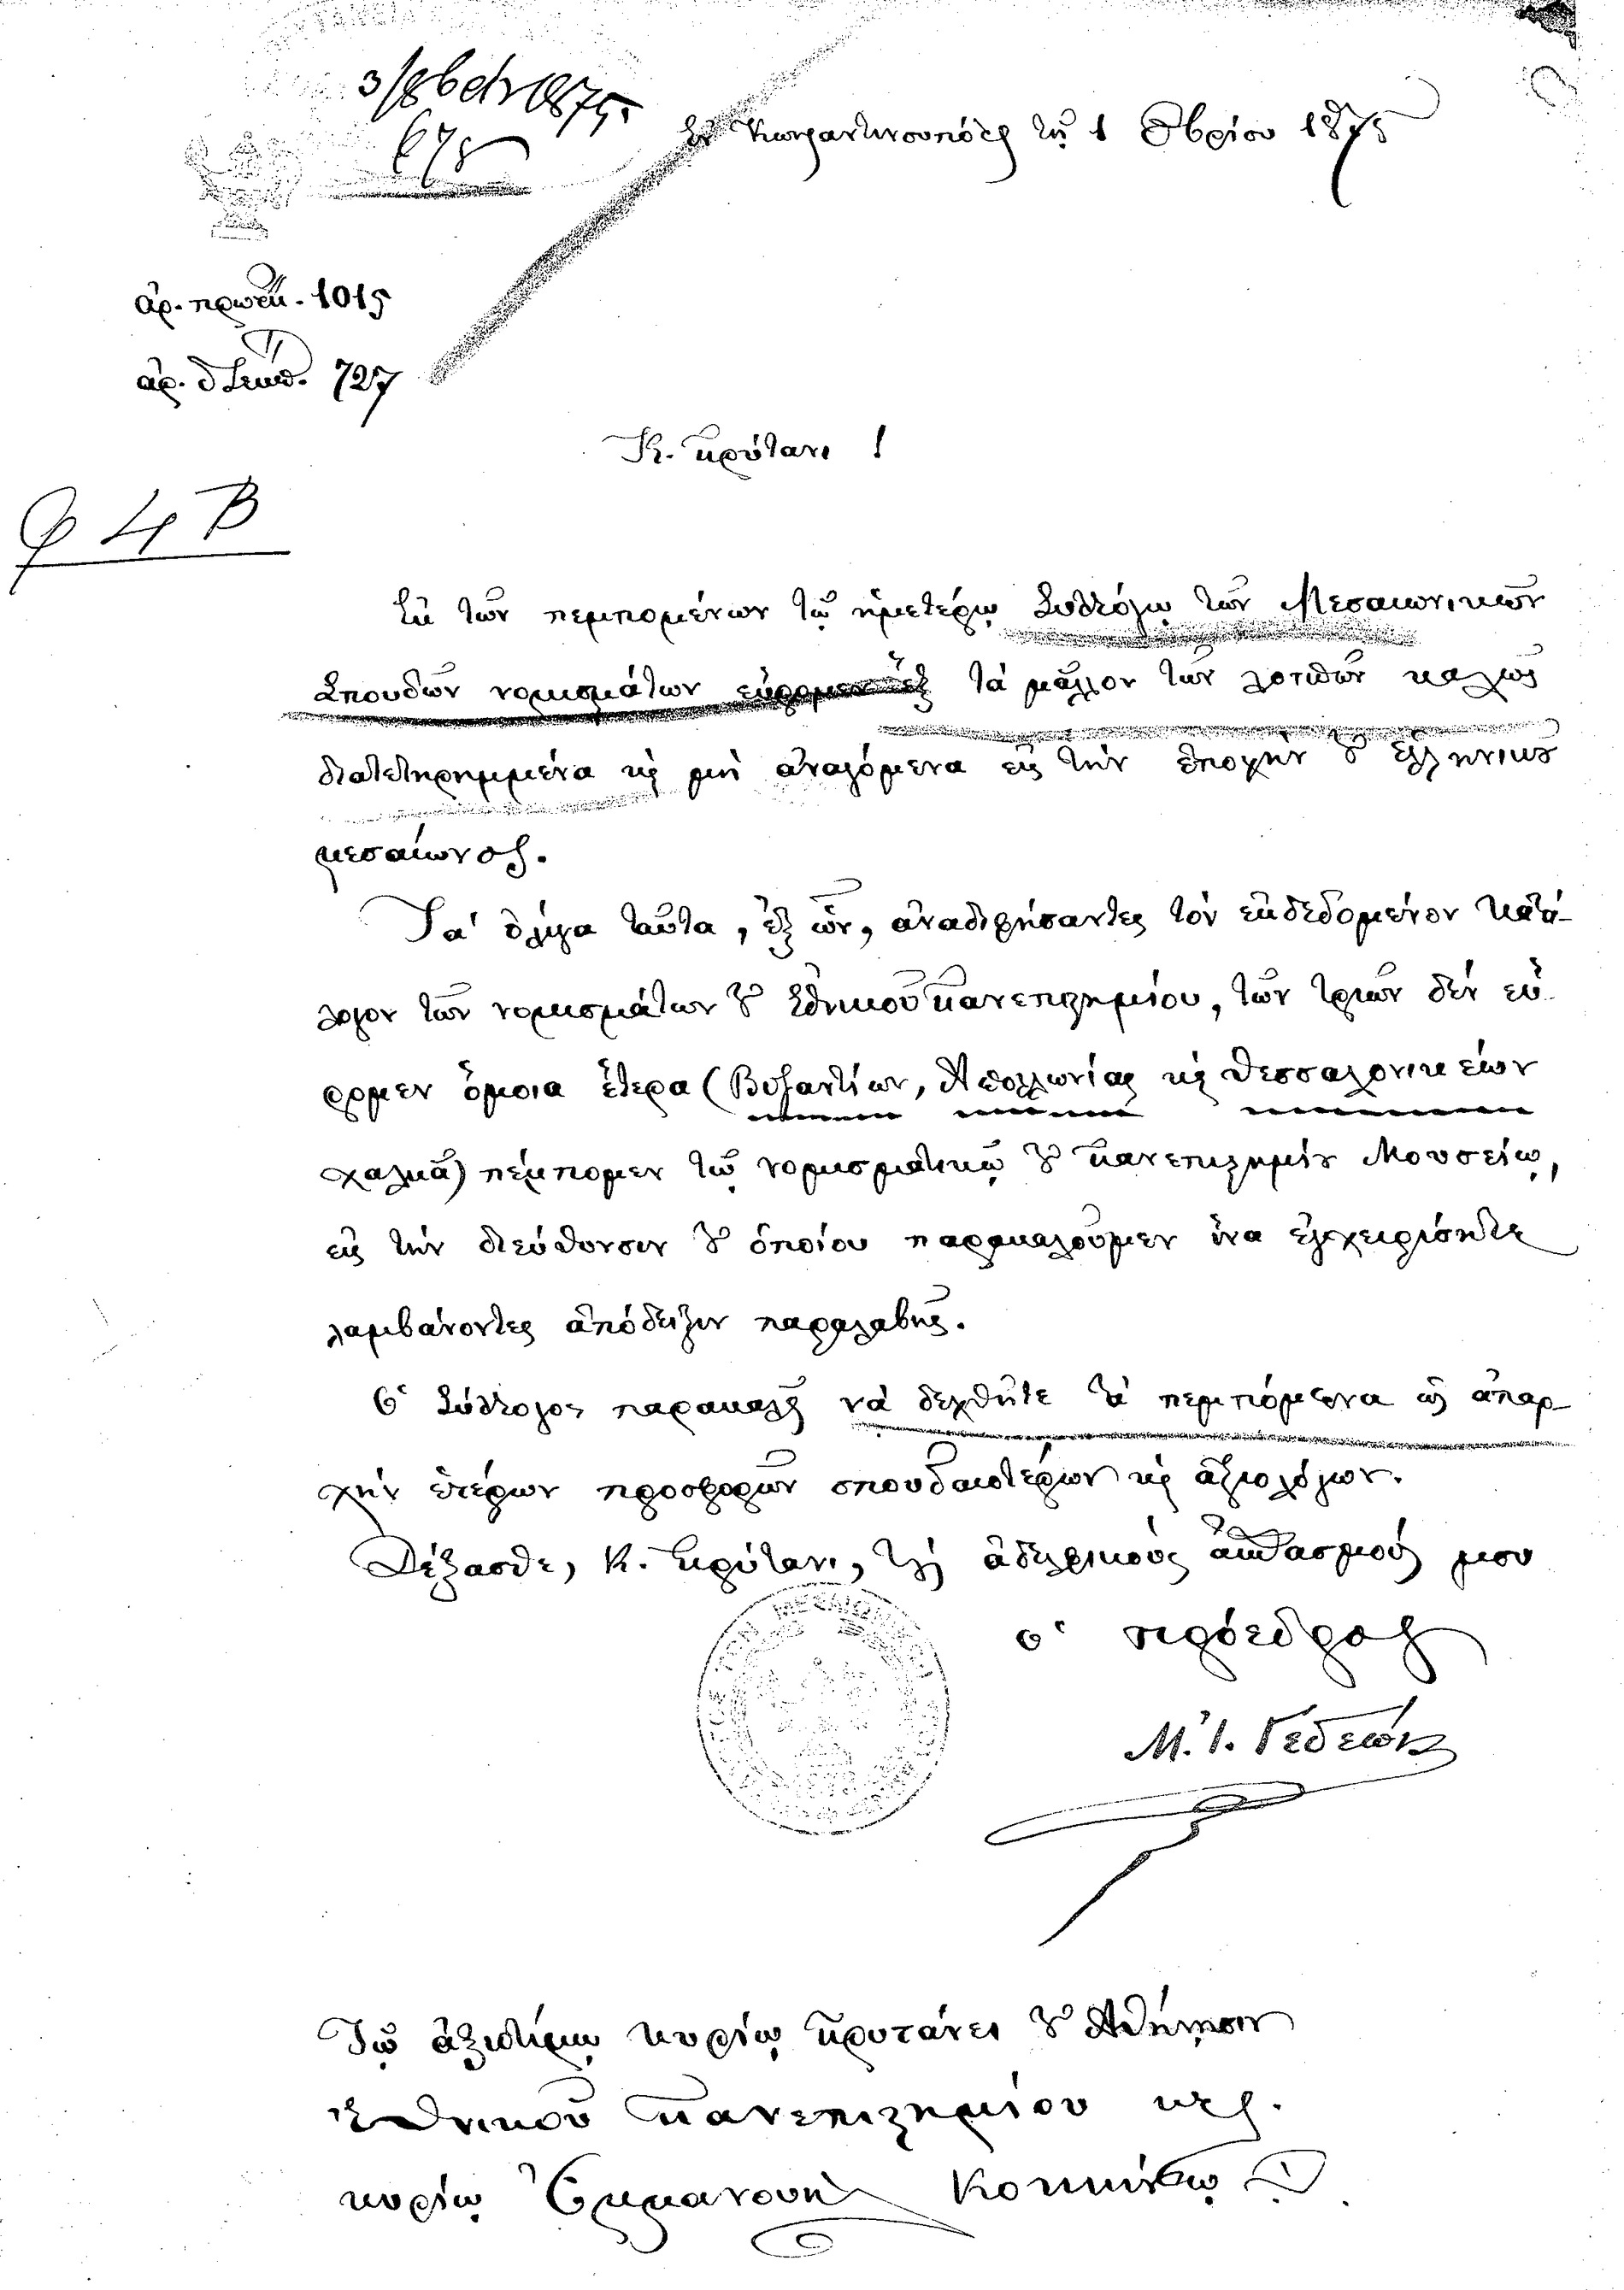 3/8βρίου 1875
678
Ἐν Κωνσταντινουπόλει τῇ 1 8βρίου 1875
ἀρ. πρωτ. 1015
ἀρ. διεκπ. 727
Κ. Πρύτανι !
φ 4 Β
Ἐκ τῶν πεμπομένων τῷ ἡμετέρῳ Συλλόγῳ τῶν Μεσαιωνικῶν
Σπουδῶν νομισμάτων εὕρομεν ἓξ τὰ μᾶλλον τῶν λοιπῶν καλῶς
διατετηρημμένα κὶ μὴ ἀναγόμενα εἰς τὴν ἐποχὴν τοῦ ἑλληνικοῦ
μεσαίωνος.
Τὰ ὀλίγα ταῦτα, ἐξ ὧν, ἀναδιφήσαντες τὸν ἐκδεδομένον Κατά-
λογον τῶν νομισμάτων τοῦ Ἐθνικοῦ Πανεπιστημίου, τῶν τριῶν δὲν εὕ-
ρομεν ὅμοια ἕτερα (Βυζαντίων, Ἀπολλωνίας κὶ Θεσσαλονικέων
χαλκᾶ) πέμπομεν τῷ νομισματικῷ τοῦ Πανεπιστημίου Μουσείῳ,
εἰς τὴν διεύθυνσιν τοῦ ὁποίου παρακαλοῦμεν ἵνα ἐγχειρίσητε
λαμβάνοντες ἀπόδειξιν παραλαβῆς.
Ὁ Σύλλογος παρακαλεῖ νὰ δεχθῆτε τὰ πεμπόμενα ὡς ἀπαρ-
χὴν ἑτέρων προσφορῶν σπουδαιοτέρων κὶ ἀξιολόγων.
Δέξασθε, Κ. Πρύτανι, τοὺς ἀδελφικοὺς ἀσπασμούς μου
ὁ πρόεδρος
Μ. Ι. Γεδεών
Τῷ ἀξιοτίμῳ κυρίῳ Πρυτάνει τοῦ Ἀθήνησιν
Ἐθνικοῦ Πανεπιστημίου κτλ.
κυρίῳ Ἐμμανουὴλ Κοκκίνῳ